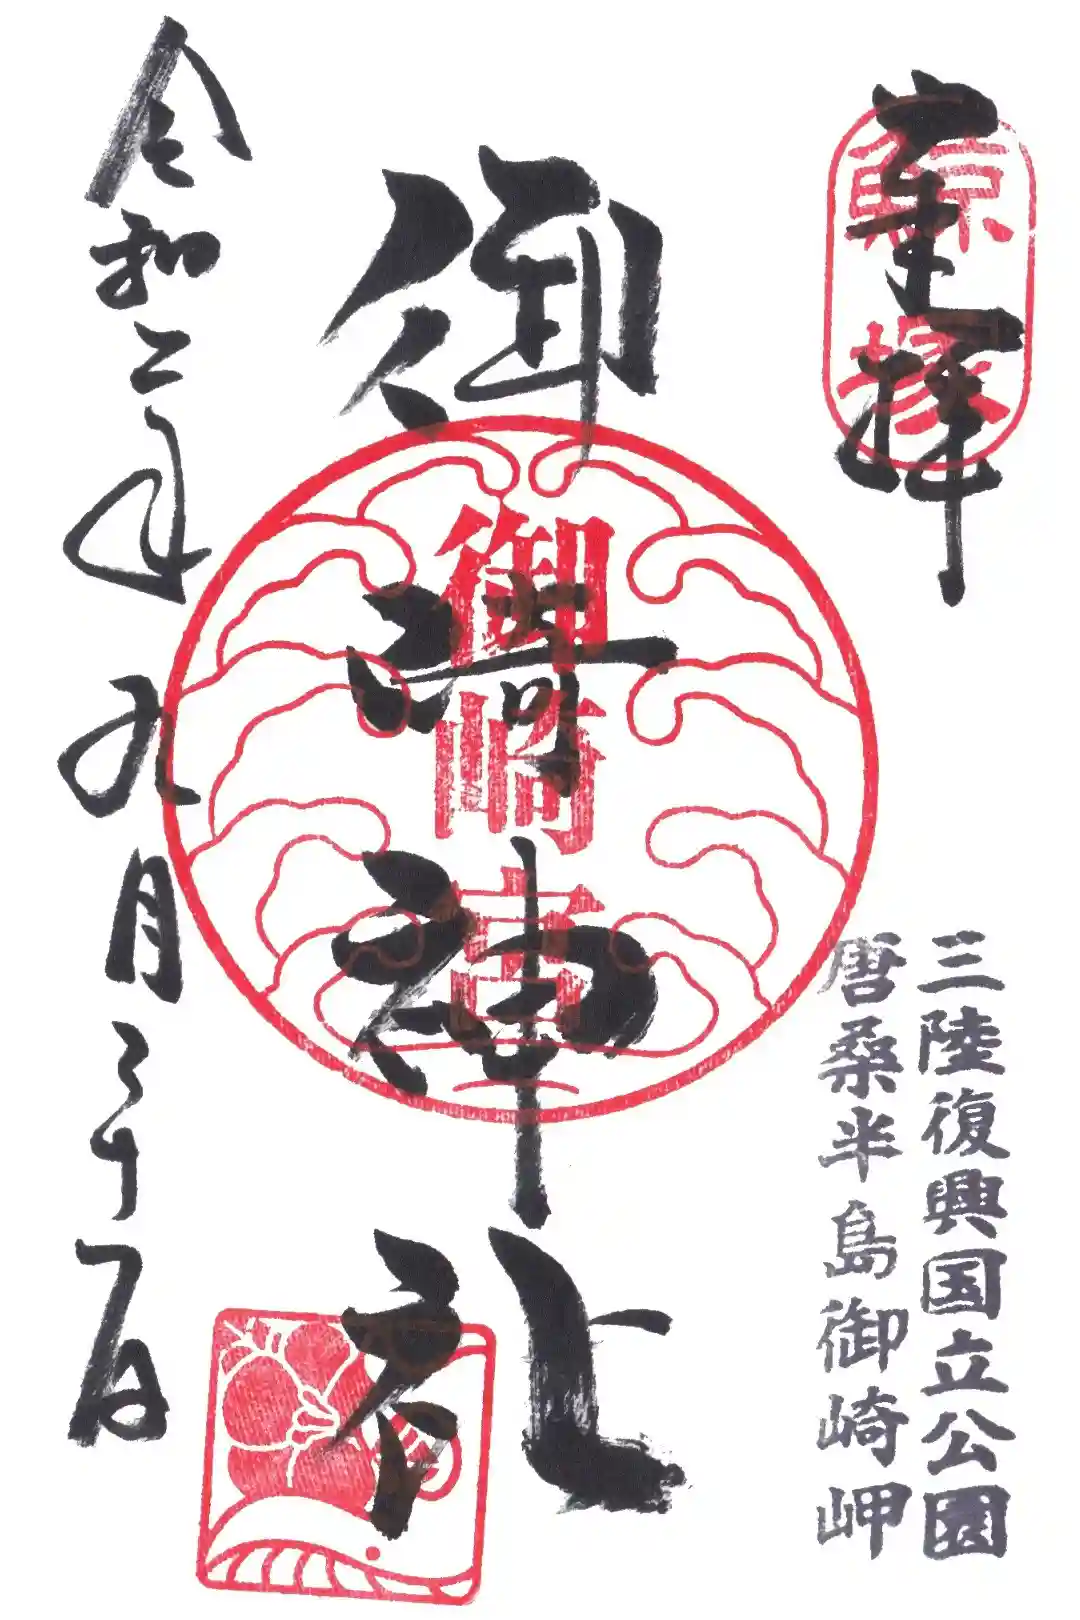 奉拝
鯨塚
三陸復興国立公園
唐桑半島御崎岬
御崎神社
御崎
令和二年九月三十日